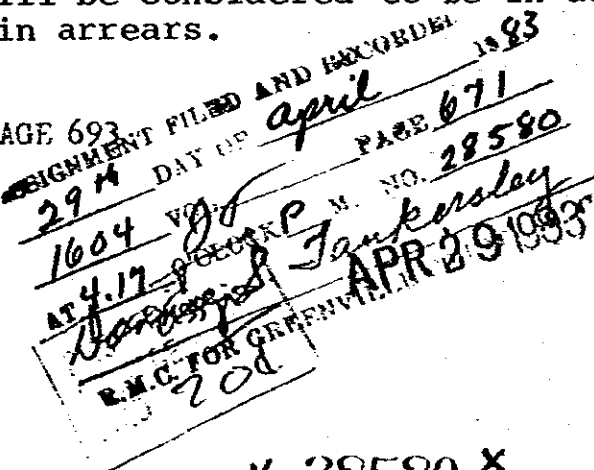 ill be considered to be in
in arrears.
AGE 693
ASSIGNMENT FILED AND RECORDED
29th DAY OF April 1983
1604 VOL. PAGE 671
AT 4:17 O'CLOCK P. M. NO. 28580
Tankersley
R.M.C. FOR GREENVILLE
APR 29 1983
200
28580 X